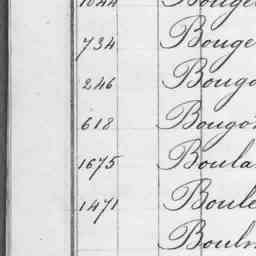 1044 Bouge
734 Bouge
246 Bouga
618 Bougo
1675 Boula
1471 Boule
Bouln